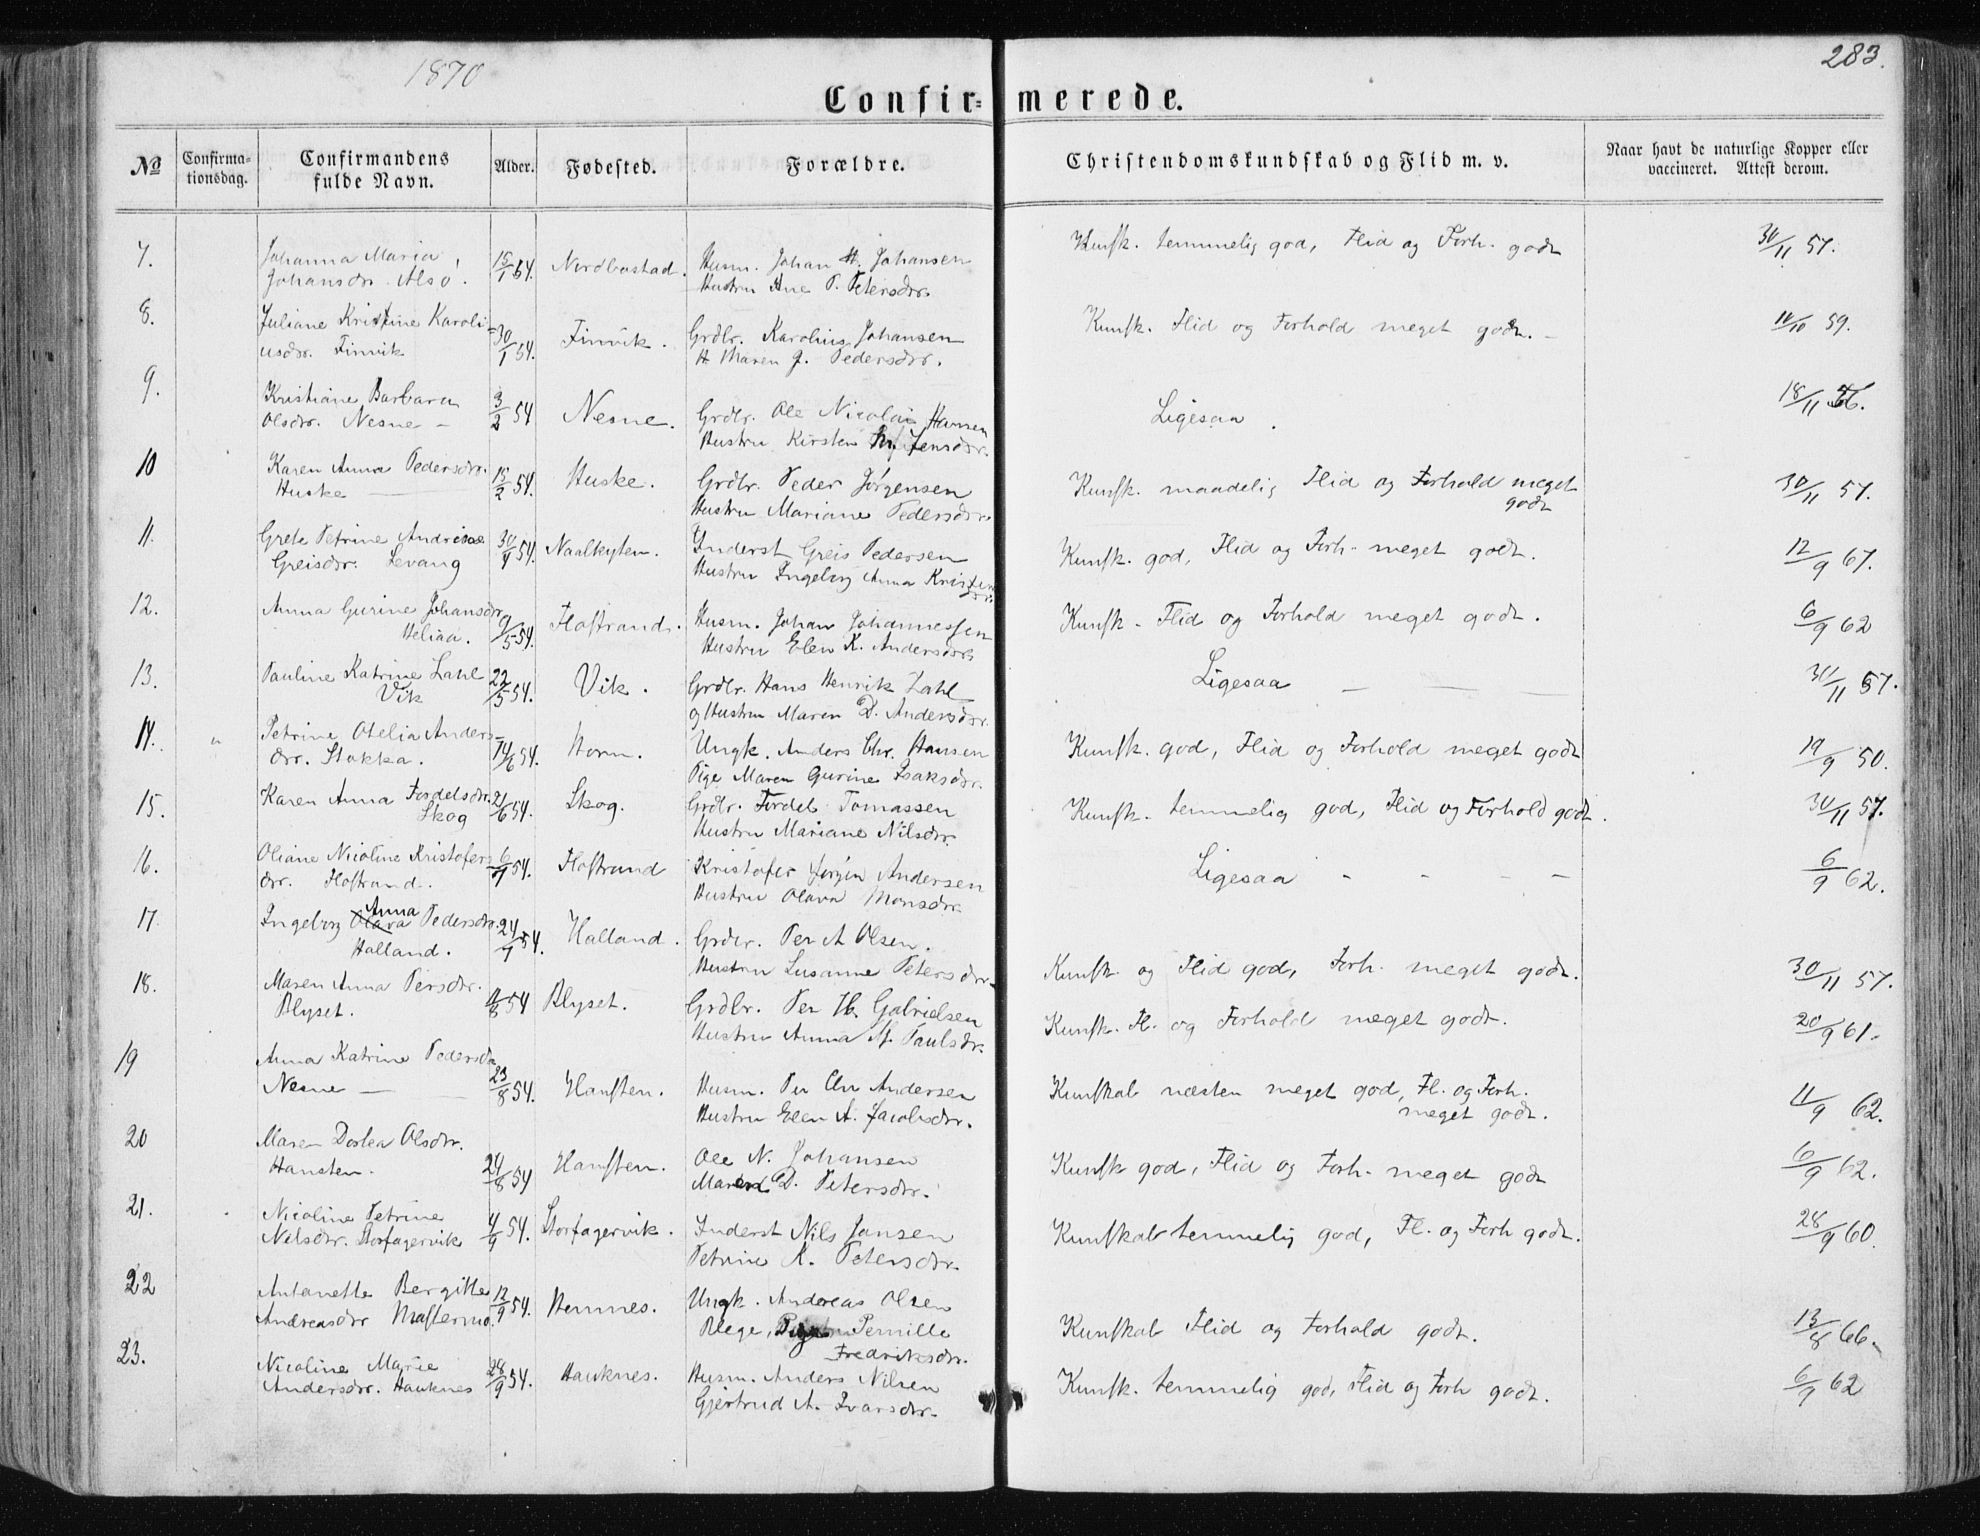 1870
283.
Confir= merede.
No
Confirma-
tionsdag.
Confirmandens
fulde Navn.
Alder.
Fødested.
Forældre.
Christendomskundskab og Flid m. v.
Naar havt de naturlige Kopper eller
vaccineret. Attest derom.
7. Johanna Maria 15/1 54. Nordbostad. Husm. Johan H. Johansen Kunsk. temmelig god, Flid og Forh. godt 30/11 57.
Johansdr. Alsø. Hustru Ane P. Petersdr.
8. Juliane Kristine Karoli- 30/1 54. Finvik. Grdbr. Karolius Johansen Kunsk. Flid og Forhold meget godt. 14/10 59.
usdr. Finvik H Maren J. Pedersdr.
9. Kristiane Barbara 3/2 54 Nesne. Grdbr. Ole Nicolai Hansen Ligesaa. 18/11
Olsdr. Nesne - Hustru Kirsten Jensdr.
10 Karen Anna Pedersdr. 15/2 54. Huske. Grdbr. Peder Jørgensen Kunsk. maadelig Flid og Forhold meget 30/11 57.
Huske Hustru Mariane Pedersdr. godt
11. Grete Petrine Andreae 30/4 54. Naalkyten. Inderst Greis Pedersen Kunsk. god, Flid og Forh. meget godt. 12/9 67.
Greisdr. Levang Hustru Ingeborg Anna Kristensdr.
12. Anna Gurine Johansdr 9/5 54. Flostrand. Husm. Johan Johannessen Kunsk - Flid og Forhold meget godt. 6/9 62
Heliaa. Hustru Elen K. Andersdr.
13. Pauline Katrine Zahl 22/5 54. Vik. Grdbr. Hans Henrik Zahl Ligesaa - - - 30/11 57.
Vik og Hustru Maren D. Andersdr.
14. " Petrine Otelia Anders- 14/6 54. Horn. Ungk. Anders Chr. Hansen Kunsk. god, Flid og Forhold meget godt 19/9 50.
dr. Stokka. Pige Maren Gurine Isaksdr.
15. Karen Anna Fordelsdr. 21/6 54. Skog. Grdbr. Fordel Tomassen Kunsk. temmelig god, Flid og Forhold godt. 30/11 57.
Skog Hustru Mariane Nilsdr.
16. Oliane Nicoline Kristofers 6/7 54. Flostrand Kristofer Jørgen Andersen Ligesaa - - - - 6/9 62.
dr. Flostrand. Hustru Olava Monsdr.
17 Ingeborg Olava Anna Pedersdr. 24/7 54. Halland. Grdbr. Per A Olsen. Kunsk. og Flid god, Forh. meget godt. 30/11 57.
Halland. Hustru Susanne Petersdr.
18. Maren Anna Persdr. 11/8 54 Blyset. Grdbr. Per H. Gabrielsen Kunsk. Fl. og Forhold meget godt. 20/9 61.
Blyset. Hustru Anna M. Paulsdr.
19 Anna Katrine Pedersdr 23/8 54. Hansten. Husm. Per Chr Andersen Kunskab næsten meget god, Fl. og Forh. 11/9 62.
Nesne - Hustru Elen A. Jacobsdr. meget godt.
20 Maren Dortea Olsdr. 24/8 54 Hansten. Ole N. Johansen Kunsk god, Flid og Forh. meget godt 6/9 62.
Hansten. Maren D. Petersdr.
21. Nicoline Petrine 4/9 54. Storfagervik. Inderst Nils Jansen Kunskab temmelig god, Fl. og Forh godt. 28/9 60.
Nilsdr. Storfagervik Petrine K. Petersdr.
22 Antonette Bergitte 12/9 54. Hemnes. Ungk. Andreas Olsen Kunskab Flid og Forhold godt. 13/8 66.
Andreasdr Mastermo. Pige Pernille
Fredriksdr.
23. Nicoline Marie 28/9 54. Hauknes. Husm. Anders Nilsen Kunsk. temmelig god, Flid og Forh godt. 6/9 62
Andersdr. Hauknes Gjertrud A. Ivarsdr.